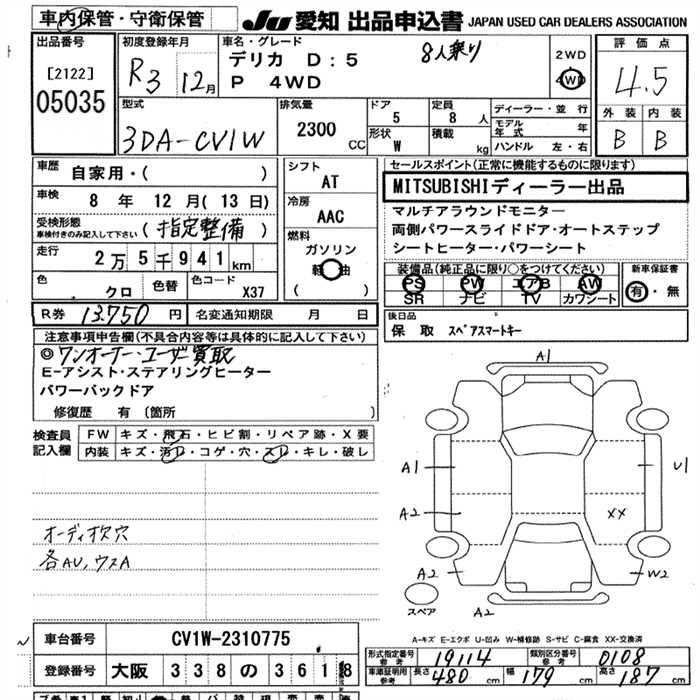 車内保管・守衛保管
JU 愛知 出品申込書 JAPAN USED CAR DEALERS ASSOCIATION
出品番号
[2122]
05035
初度登録年月
R3 12月
車名・グレード
デリカ D:5
P 4WD
8人乗り
2WD
4WD
評価点
4.5
外装 内装
B B
型式
3DA-CV1W
排気量
2300 CC
ドア
5
形状
W
定員
8 人
積載
kg
ディーラー・並行
モデル年式 年
ハンドル 左・右
車歴
自家用・( )
車検
8 年 12 月 (13 日)
受検形態
車検付きのみ記入して下さい
(指定整備)
走行
2万5千941km
色
クロ
色替
色コード
X37
シフト
AT
冷房
AAC
燃料
ガソリン
軽油
( )
セールスポイント(正常に機能するものに限ります)
MITSUBISHIディーラー出品
マルチアラウンドモニター
両側パワースライドドア・オートステップ
シートヒーター・パワーシート
装備品(純正品に限り○をつけてください)
PS PW エアB AW
SR ナビ TV カワシート
新車保証書
有・無
R券 13.750 円
名変通知期限 月 日
後日品
保 取 スペアスマートキー
注意事項申告欄(不具合内容等は具体的に記入して下さい)
◎ワンオーナー・ユーザ買取
E-アシスト・ステアリングヒーター
パワーバックドア
修復歴 有 (箇所 )
検査員記入欄
FW キズ・飛石・ヒビ割・リペア跡・X要
内装 キズ・汚レ・コゲ・穴・スレ・キレ・破レ
オーディオ欠穴
各AU,ウスA
A1
A1
U1
A2
XX
A2
W2
A2
スペア
A-キズ E-エクボ U-凹み W-補修跡 S-サビ C-腐食 XX-交換済
車台番号
CV1W-2310775
登録番号
大阪 338 の 3618
形式指定番号
参考
19114
類別区分番号
参考
0108
車庫証明用
参考
長さ 480 cm
幅 179 cm
高さ 187 cm